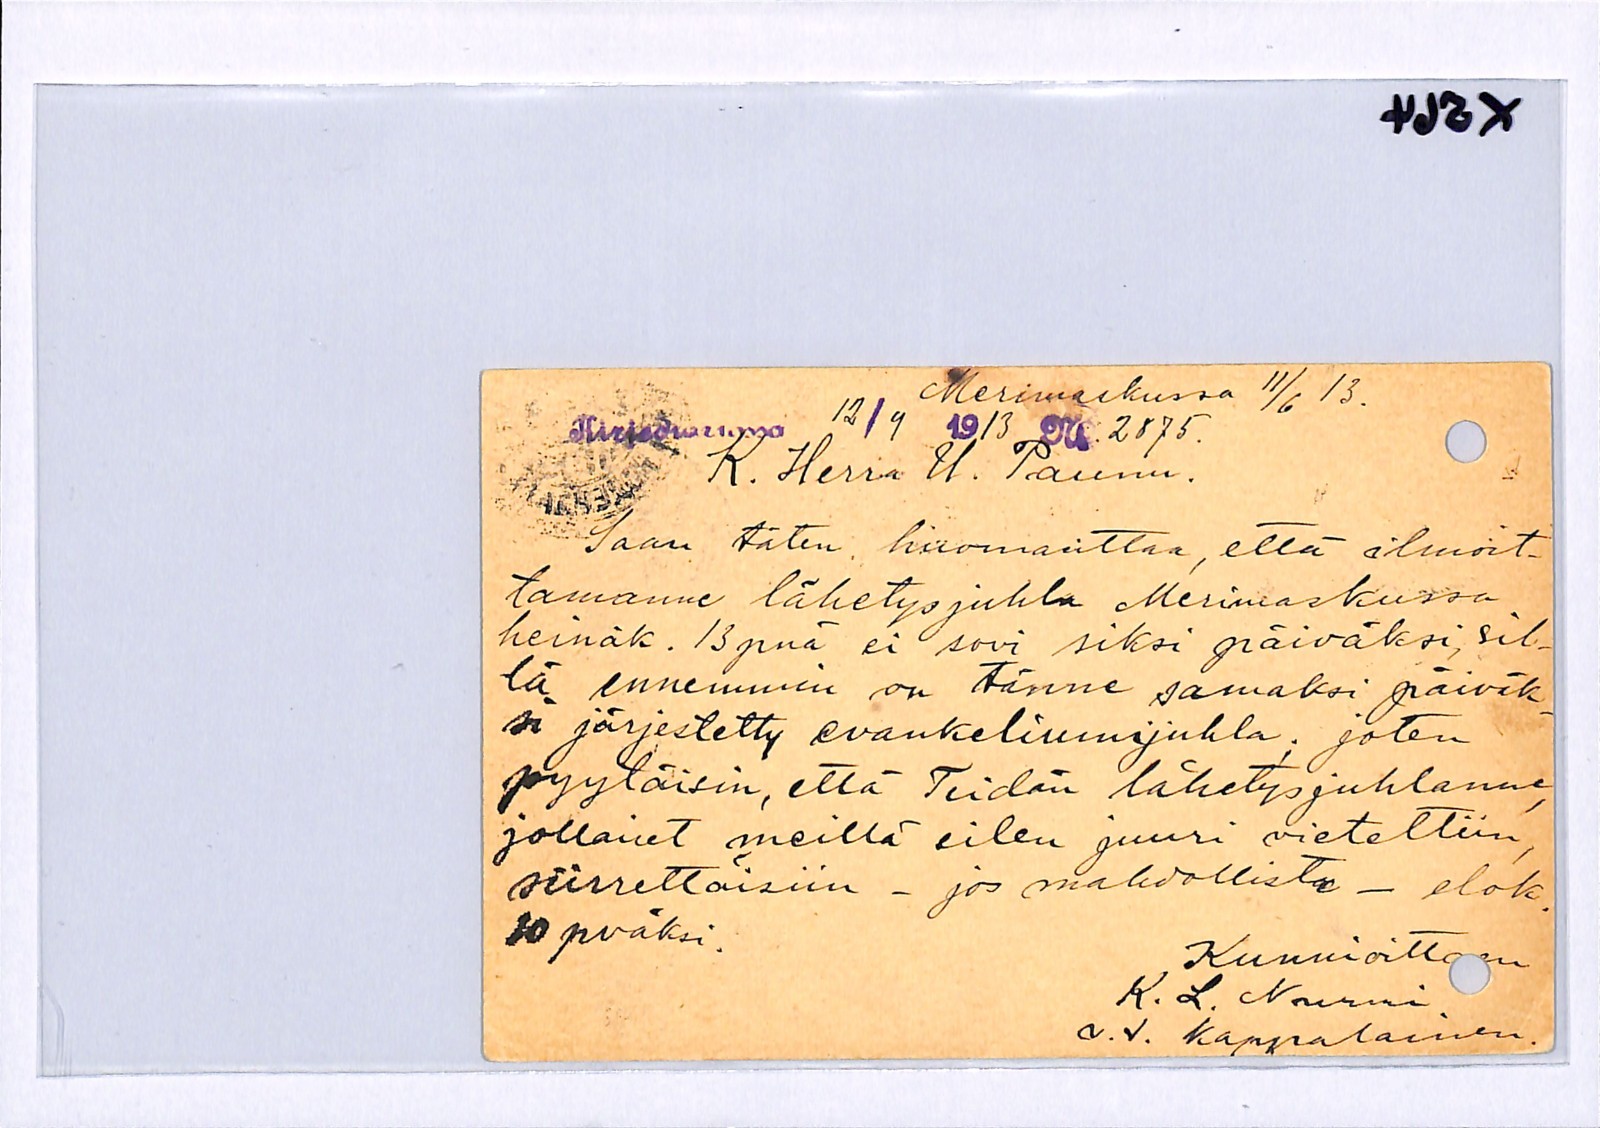 Merimaskussa 11/6 13.
Kirjediariossa 12/9 1913 № 2875.
K. Herra U. Paunu.
Saan täten huomauttaa, että ilmoit-
tamanne lähetysjuhla Merimaskussa
heinäk. 13 pnä ei sovi siksi päiväksi, sil-
lä ennemmin on tänne samaksi päiväk-
si järjestetty evankeliumijuhla, joten
pyytäisin, että Teidän lähetysjuhlanne,
jollaiset meillä eilen juuri vietettiin,
siirrettäisiin – jos mahdollista – elok.
10 pväksi.
Kunnioittaen
K. L. Nurmi
v.t. kappalainen.